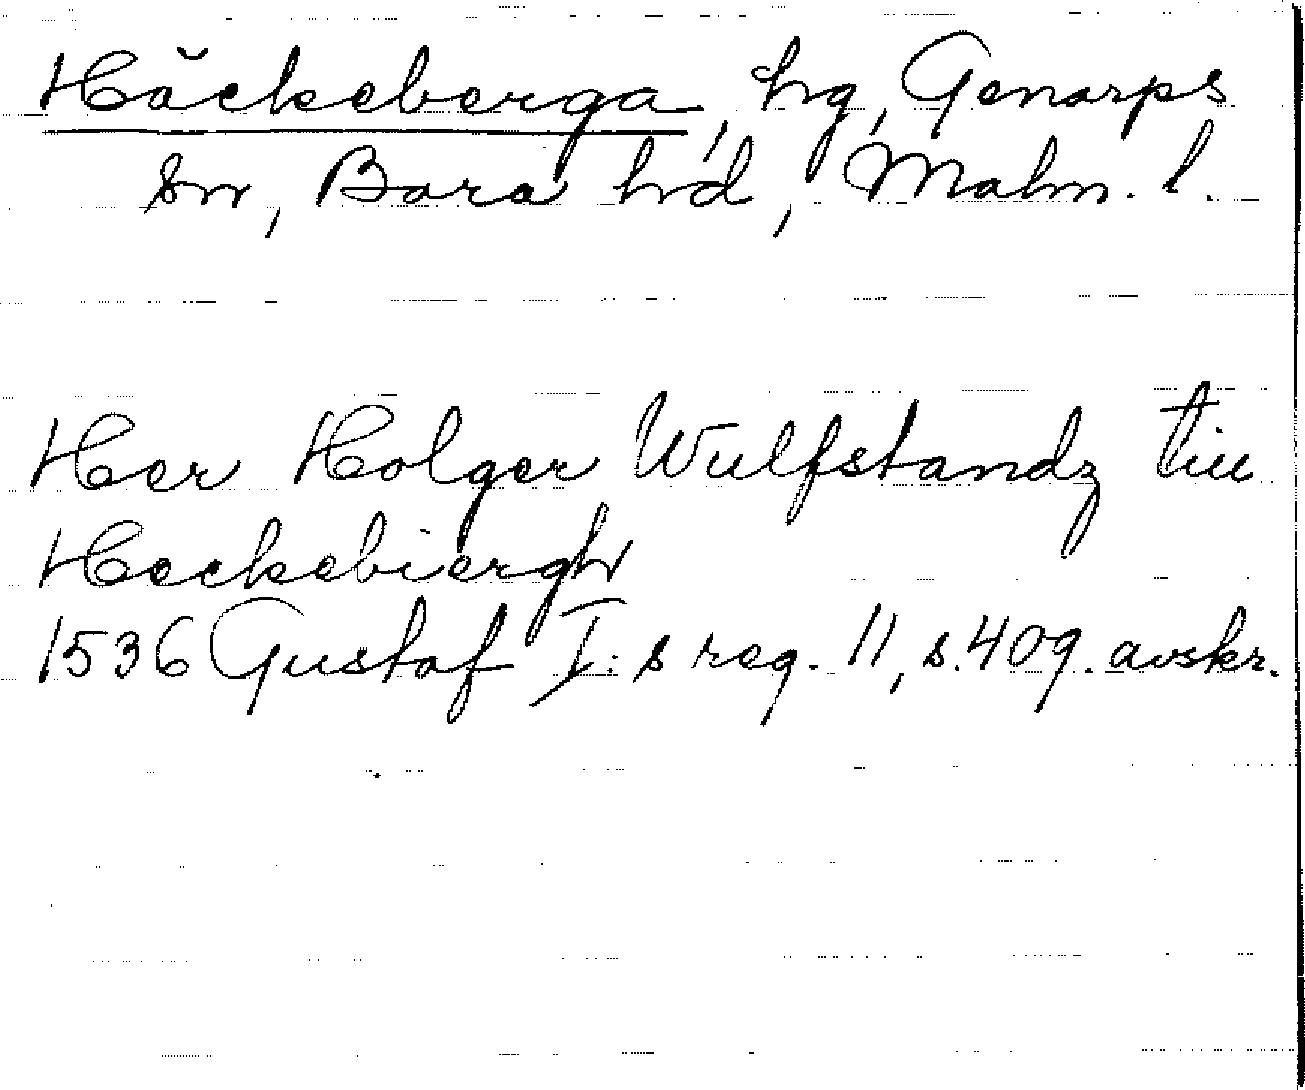 Häckeberga, hg, Genarps
sn, Bara hd, Malm. l.
Her Holger Wulfstandz till
Heckebiergh
1536 Gustaf I:s reg. 11, s. 409. avskr.